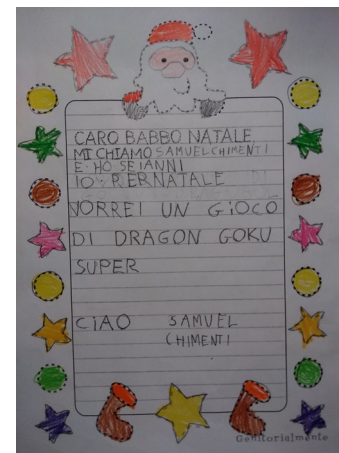 CARO BABBO NATALE,
MI CHIAMO SAMUEL CHIMENTI
E HO SEI ANNI
IO PER NATALE
VORREI UN GIOCO
DI DRAGON GOKU
SUPER
CIAO SAMUEL
CHIMENTI
Genitorialmente